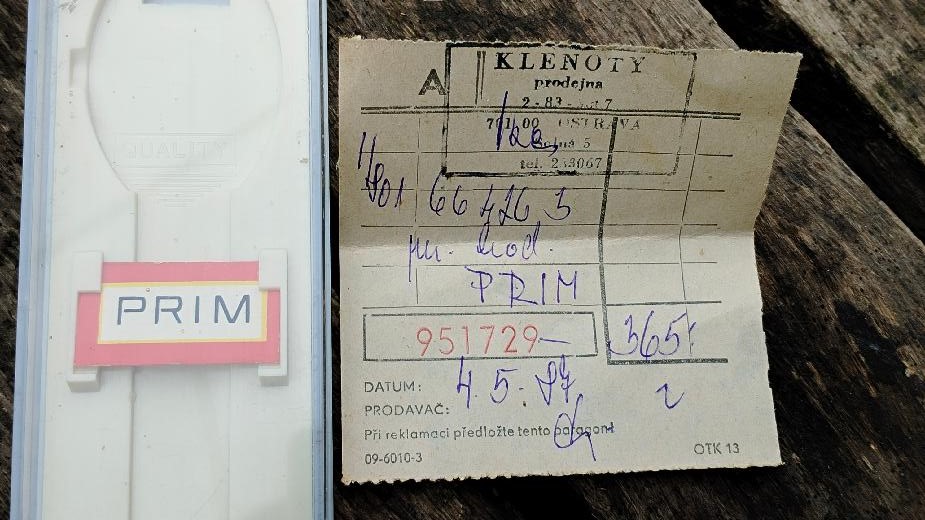 QUALITY
PRIM
A
KLENOTY
prodejna
OSTRAVA
5
tel. 233067
66 426 3
PRIM
951729
365
DATUM: 4. 5. 87
PRODAVAČ:
Při reklamaci předložte tento paragon!
09-6010-3
OTK 13